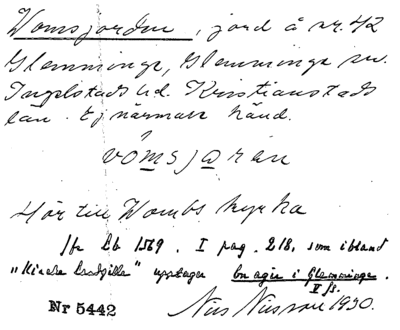 Vomsjorden, jord å nr. 42
Glemminge, Glemminge sn.
Ingelstads hd. Kristianstads
län. Ej närmare känd.
vômsjọran
Hör till Wombs kyrka
Jfr Lb 1569. I pag. 218, som ibland
"Kircke Landgille" upptager en ager i Glemminge.
II fs.
Nr 5442 Nils Nilsson 1930.